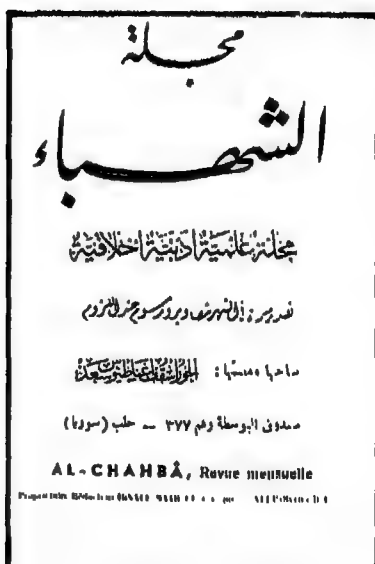 مجلة
الشهباء
مجلة علمية أدبية أخلاقية
تصدر مرة في الشهر
صاحبها ومنشئها : الخوراسقف اغناطيوس سعد
صندوق البوسطة رقم ٣٧٧ — حلب (سوريا)
AL-CHAHBÂ, Revue mensuelle